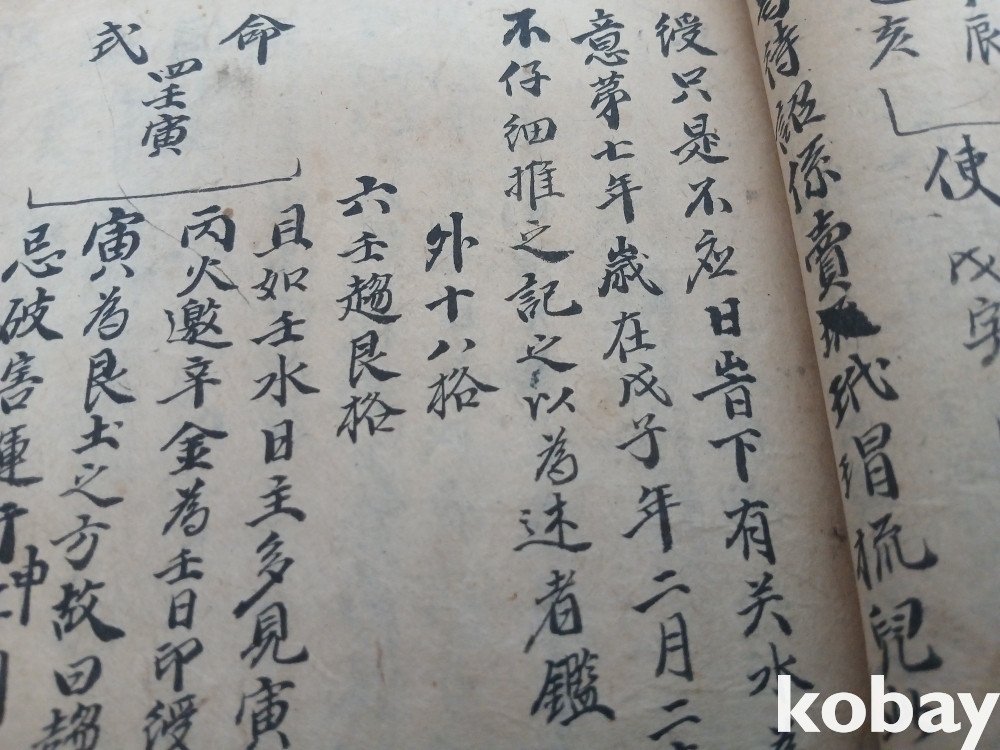 辰
亥
使
戊字
待詔係賣玳瑁梳兒
授只是不应日時下有关水
意第七年歲在戊子年二月二
不仔細推之記之以為述者鑑
外十八格
六壬趨艮格
命式
四壬寅
且如壬水日主多見寅
丙火邀辛金為壬日印綬
寅為艮土之方故曰趨
忌破害運
申
kobay